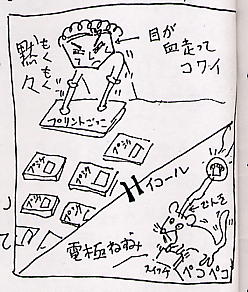 目が
血走って
コワイ
黙々
もくもく
プリントごっこ
イコール
電極ねずみ
スイッチ
ペコペコ